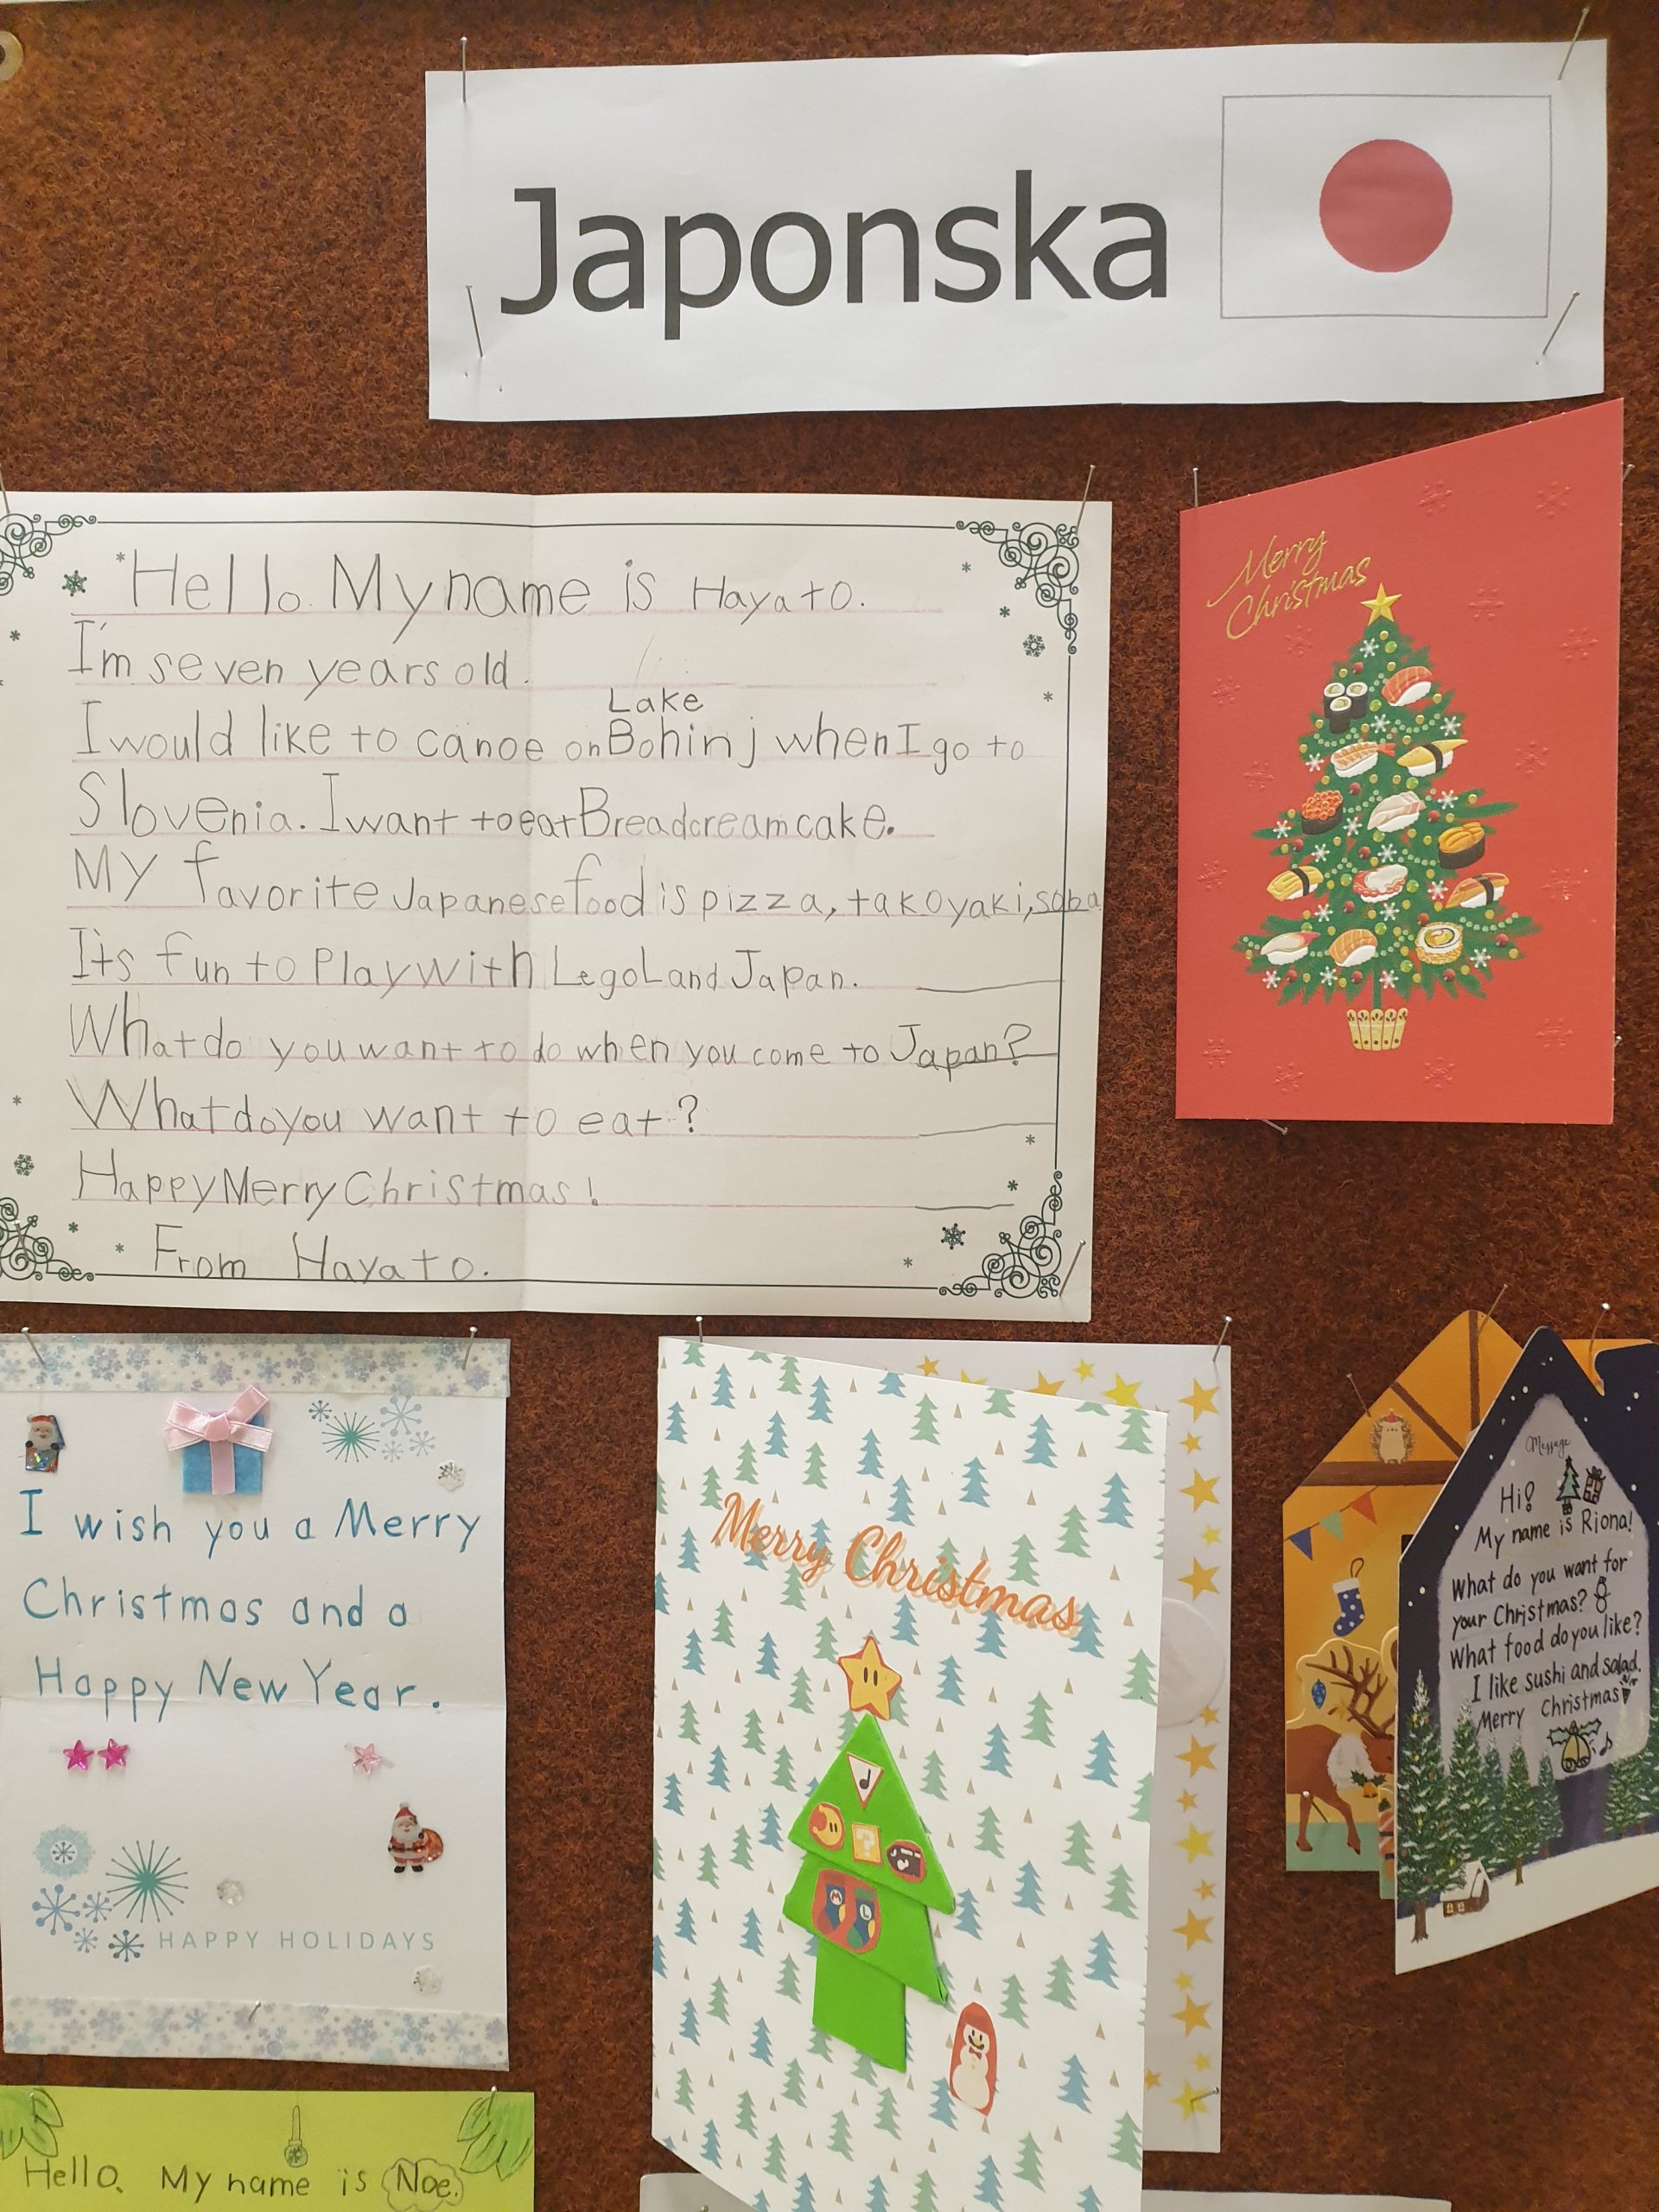 Japonska
Hello. My name is Hayato.
I'm seven years old.
Lake
I would like to canoe on Bohinj when I go to
Slovenia. I want to eat Breadcreamcake.
MY favorite Japanese food is pizza, takoyaki, soba
It's fun to Play with LegoLand Japan.
What do you want to do when you come to Japan?
What do you want to eat?
Happy Merry Christmas!
From Hayato.
Merry
Christmas
I wish you a Merry
Christmas and a
Happy New Year.
HAPPY HOLIDAYS
Merry Christmas
?
M
L
Message
Hi!
My name is Riona!
What do you want for
your Christmas?
What food do you like?
I like sushi and salad.
Merry Christmas
Hello. My name is Noe.